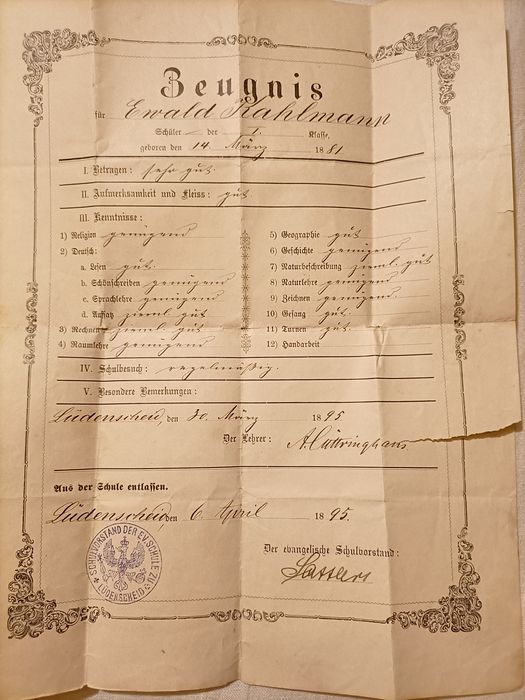 Zeugnis
für Ewald Kahlmann
Schüler der 1. Klasse,
geboren den 14. März 1881
I. Betragen: sehr gut.
II. Aufmerksamkeit und Fleiss: gut
III. Kenntnisse:
1) Religion genügend
2) Deutsch:
a. Lesen gut.
b. Schönschreiben genügend
c. Sprachlehre genügend
d. Aufsatz zieml. gut
3) Rechnen zieml. gut
4) Raumlehre genügend
5) Geographie gut
6) Geschichte genügend
7) Naturbeschreibung zieml. gut
8) Naturlehre genügend
9) Zeichnen genügend.
10) Gesang gut.
11) Turnen gut.
12) Handarbeit
IV. Schulbesuch: regelmäßig.
V. Besondere Bemerkungen:
Lüdenscheid, den 30. März 1895
Der Lehrer: A. Lüttringhaus
Aus der Schule entlassen.
Lüdenscheid den 6. April 1895.
Der evangelische Schulvorstand:
SCHULVORSTAND DER EV. SCHULE
LÜDENSCHEID